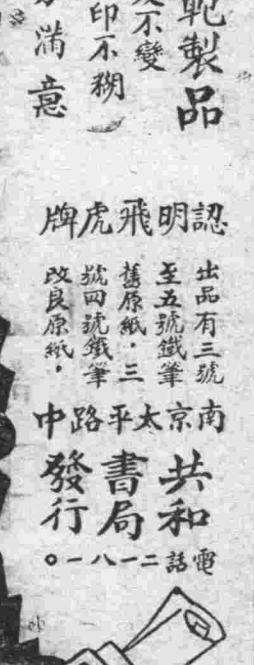 製品
不變
印不糊
滿意
認明飛虎牌
出品有三號
至五號鐵筆
舊原紙．三
號四號鐵筆
改良原紙．
南京太平路中
共和
書局
發行
電話二一八一〇